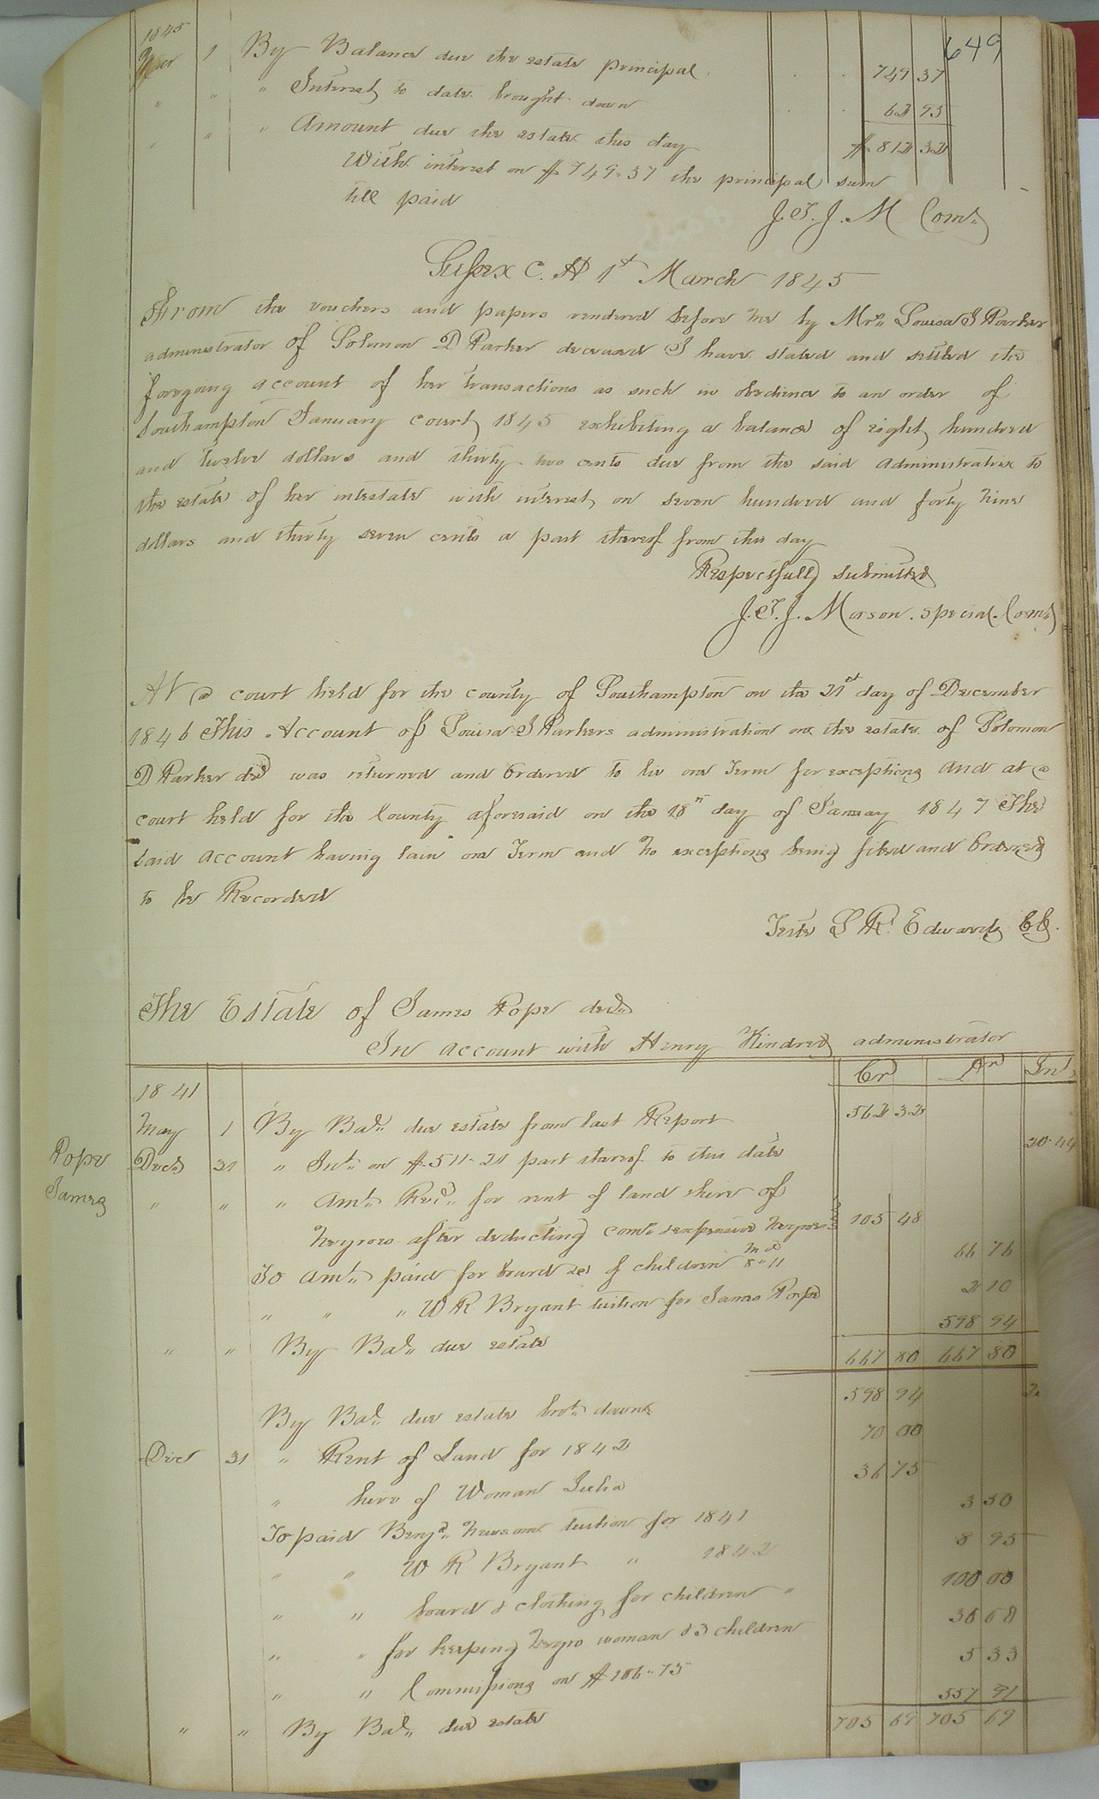 649
1845
Mar 1 By Balance due the estate principal 749 37
" " " Interest to date brought down 62 95
" " " Amount due the estate this day $812 32
With interest on $749.37 the principal sum
till paid
J. T. J. M Comr
Sussex C. H 1st March 1845
From the vouchers and papers rendered before me by Mrs Louisa J Parker
administrator of Solomon D Parker deceased I have stated and settled the
foregoing account of her transactions as such in obedience to an order of
Southampton January court 1845 exhibiting a balance of eight hundred
and twelve dollars and thirty two cents due from the said administratrix to
the estate of her intestate with interest on seven hundred and forty nine
dollars and thirty seven cents a part thereof from this day
Respectfully submitted
J. T. J. Mason. special. Comr
At a court held for the county of Southampton on the 21st day of December
1846 This Account of Louisa J Parkers administration on the estate of Solomon
D Parker decd was returned and Ordered to lie one Term for exceptions and at a
court held for the County aforesaid on the 18th day of January 1847 The
said account having lain one Term and no exceptions being filed and Ordered
to be Recorded
Teste L R. Edwards CC.
The Estate of James Pope decd
In account with Henry Kindred administrator
Cr Dr Int
1841
May 1 By Bal. due estate from last Report 562 32
Pope
James
Decr 31 " Int. on $511.21 part thereof to this date 20.44
" " " Amt. Recd. for rent of land & hire of
Negroes after deducting comr & expensive Negroes 105 48
To Amt. paid for board &c of children 8 m 11 d 66 76
" " " W R Bryant tuition for James Pope 2 10
" " By Bal. due estate 598 94
667 80 667 80
By Bal. due estate brot. down 598 94
Decr 31 " Rent of Land for 1842 70 00
" hire of Woman Julia 36 75
To paid Benjn. Newsom tuition for 1841 3 50
" " W R Bryant " 1842 8 95
" " board & clothing for children " 100 00
" " for keeping Negro woman & 3 children 36 68
" " Commissions on $106.75 5 33
" " By Bal. due estate 557 91
705 69 705 69